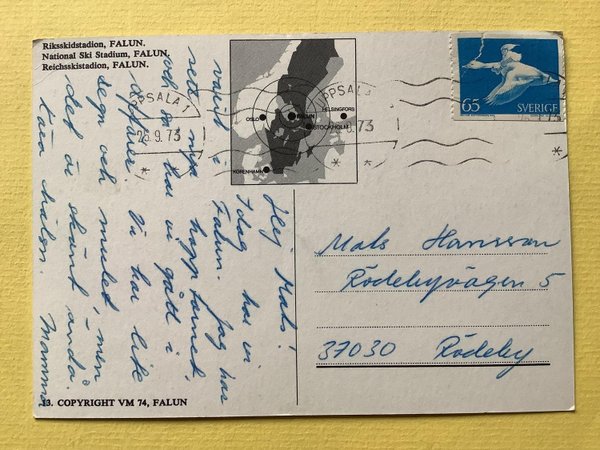 Riksskidstadion, FALUN.
National Ski Stadium, FALUN.
Reichsskistadion, FALUN.
OSLO
FALUN
STOCKHOLM
HELSINGFORS
KÖPENHAMN
UPPSALA 1
25.9.73
UPPSALA
9.73
65 SVERIGE
Hej Mats!
Idag har vi
varit i Falun. Jag har
sett nya hopptornet,
och så har vi gått i
affärer. Vi har lite
regn och mulet, men
det är skönt ändå.
Mamma
Mats Hansson
Rödebyvägen 5
37030 Rödeby
13. COPYRIGHT VM 74, FALUN